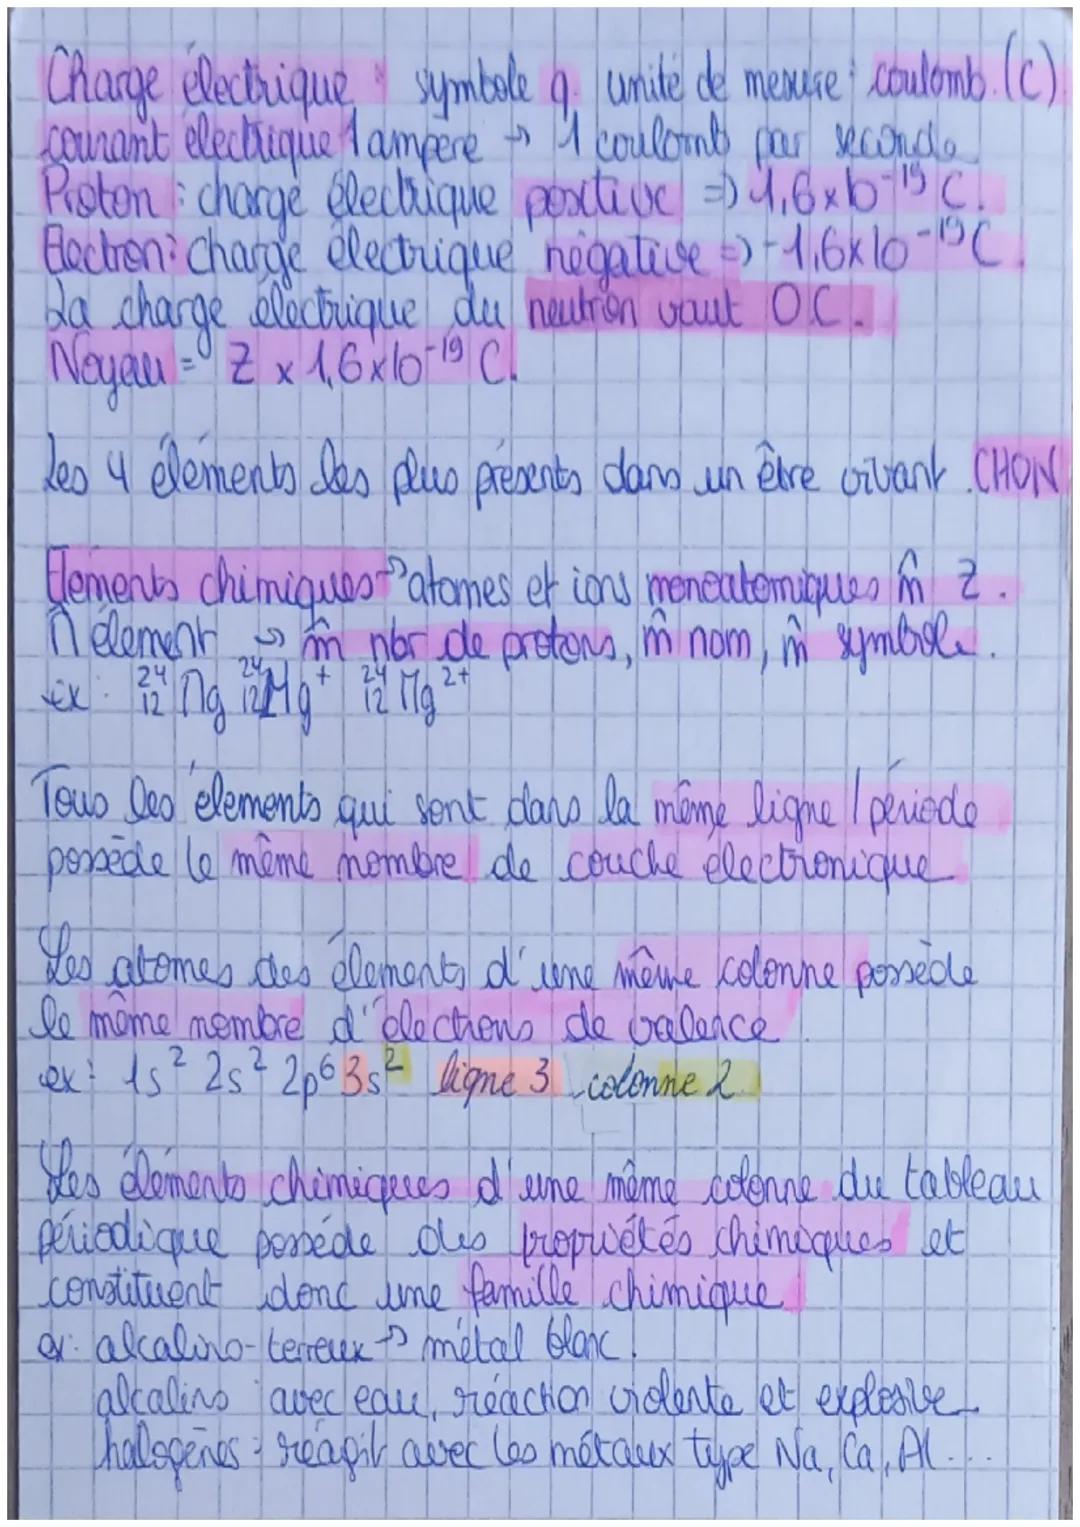 Charge électrique : symbole q. unité de mesure : coulomb. (C)
courant électrique 1 ampère → 1 coulomb par seconde
Proton : charge électrique positive => 1,6x10-19 C.
Electron : charge électrique négative => -1,6x10-19 C.
La charge électrique du neutron vaut 0C.
Noyau = Z x 1,6x10-19 C.
Les 4 éléments les plus présents dans un être vivant CHON
Elements chimiques → atomes et ions monoatomiques m̂ Z.
m̂ élement → m̂ nbr de protons, m̂ nom, m̂ symbole.
ex : 24 12 Mg 24 12 Mg+ 24 12 Mg 2+
Tous les élements qui sont dans la même ligne / période
possède le même nombre de couche électronique.
Les atomes des éléments d'une même colonne possède
le même nombre d'électrons de valence
ex : 1s² 2s² 2p⁶ 3s² ligne 3 - colonne 2.
Les éléments chimiques d'une même colonne du tableau
périodique possède des propriétés chimiques et
constituent donc une famille chimique.
ex : alcalino-terreux → métal blanc.
alcalins : avec eau, réaction violente et explosive.
halogènes : réagit avec les métaux type Na, Ca, Al...